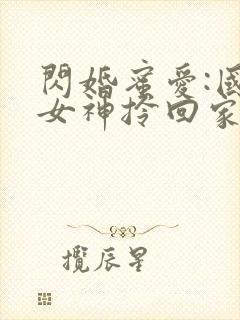 閃婚蜜愛:國
女神拎回家
攬辰星